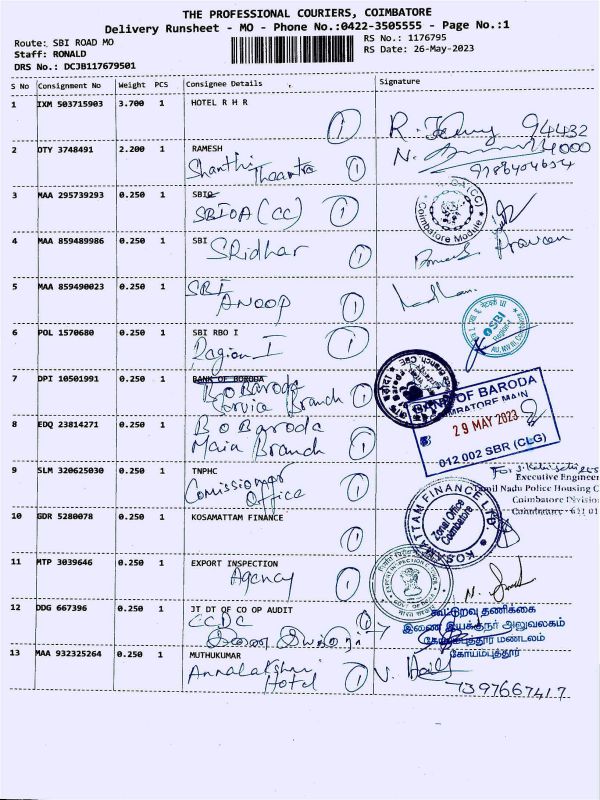 THE PROFESSIONAL COURIERS, COIMBATORE
Delivery Runsheet - MO - Phone No.:0422-3505555 - Page No.:1
Route: SBI ROAD MO
RS No.: 1176795
Staff: RONALD
RS Date: 26-May-2023
DRS No.: DCJB117679501
S No Consignment No Weight PCS Consignee Details Signature
1 IXM 503715903 3.700 1 HOTEL R H R
1
R. 94432
2 OTY 3748491 2.200 1 RAMESH
N. 14000
Shanthi 1
9786404654
3 MAA 295739293 0.250 1 SBIO
SBIOA (CC) 1
Coimbatore Module
4 MAA 859489986 0.250 1 SBI
SRidhar 1
Praveen
5 MAA 859490023 0.250 1 SBI
ANOOP 1
6 POL 1570680 0.250 1 SBI RBO I
Region I 1
SBI
7 DPI 10501991 0.250 1 BANK OF BARODA
B O Baroda
Service Branch 1
BANK OF BARODA
COIMBATORE MAIN
29 MAY 2023
012 002 SBR (CLG)
8 EDQ 23814271 0.250 1 B O Baroda
Main Branch 1
9 SLM 320625030 0.250 1 TNPHC
Comissioner
Office 1
For
Executive Engineer
Tamil Nadu Police Housing C
Coimbatore Division
10 GDR 5280078 0.250 1 KOSAMATTAM FINANCE
1
KOSAMATTAM FINANCE LTD.
Zonal Office
Coimbatore
11 MTP 3039646 0.250 1 EXPORT INSPECTION
Agency 1
N.
12 DDG 667396 0.250 1 JT DT OF CO OP AUDIT
CCDC 1
இணை
கூட்டுறவு தணிக்கை
இணை இயக்குநர் அலுவலகம்
கோயம்புத்தூர் மண்டலம்
கோயம்புத்தூர்
13 MAA 932325264 0.250 1 MUTHUKUMAR
Annalakshmi
Hotel 1
V.
7397667417